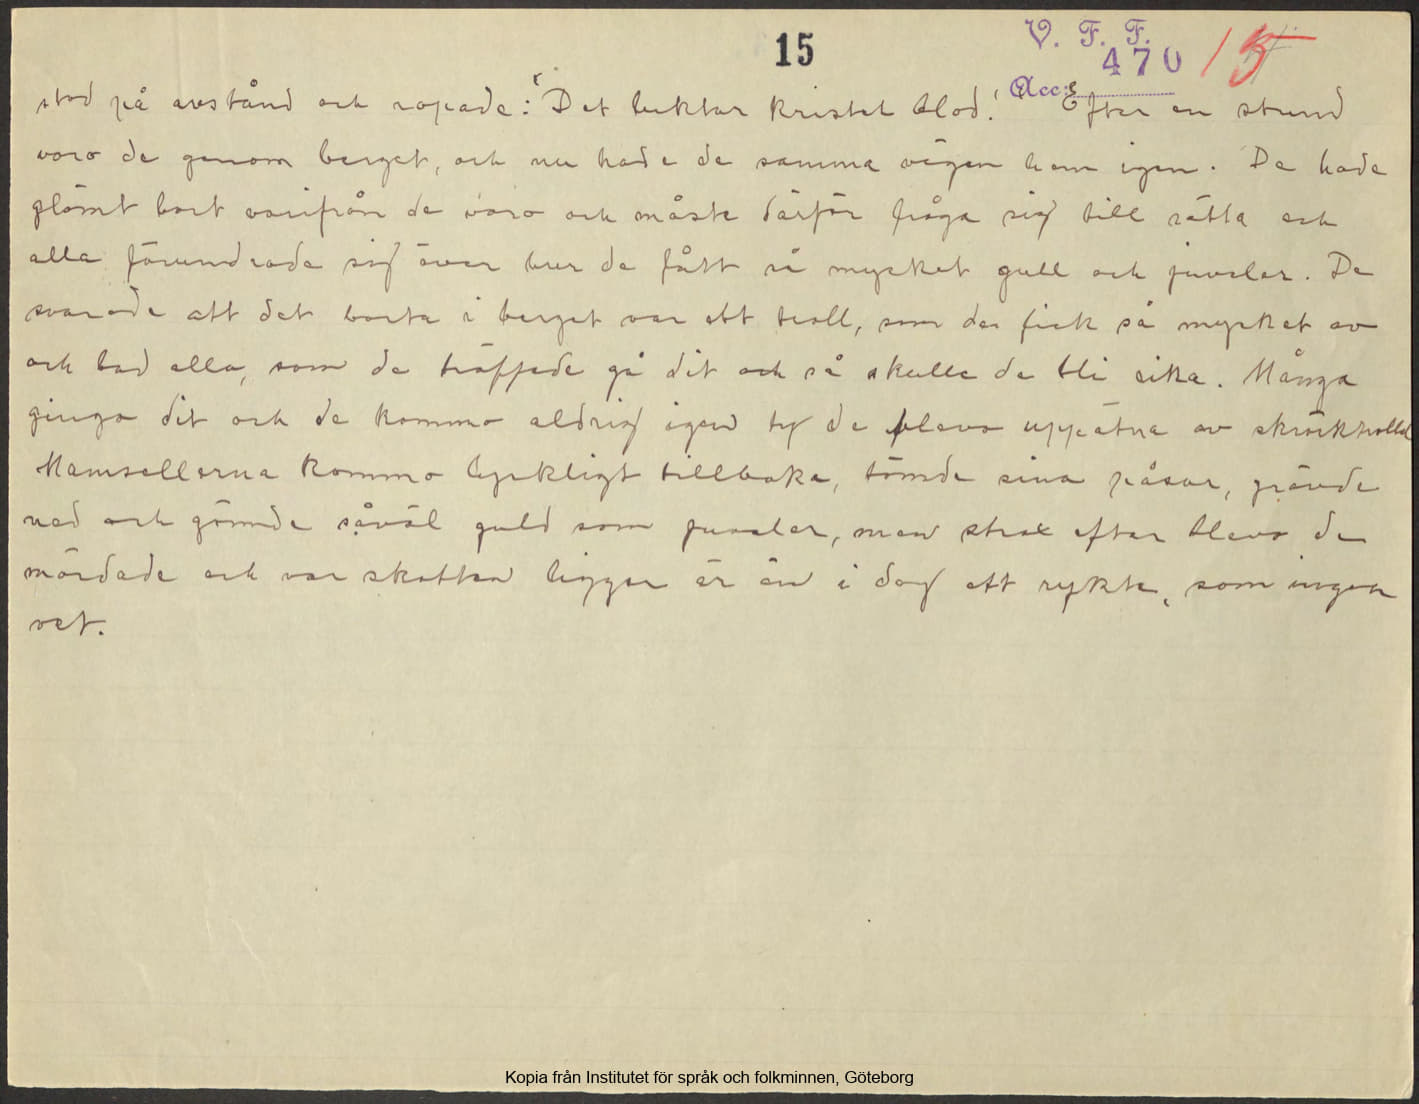 15
V. F. F.
470 15
Acc:
stod på avstånd och ropade: "Det luktar kristet blod!" Efter en stund
voro de genom berget, och nu hade de samma vägen hem igen. De hade
glömt bort varifrån de voro och måste därför fråga sig till rätta och
alla förundrade sig över hur de fått så mycket gull och juveler. De
svarade att det borta i berget var ett troll, som de fick så mycket av
och bad alla, som de träffade gå dit och så skulle de bli rika. Många
gingo dit och de kommo aldrig igen ty de blevo uppätna av skräcktrollet
Mamsellerna kommo lyckligt tillbaka, tömde sina påsar, grävde
ned och gömde såväl guld som juveler, men strax efter blevo de
mördade och var skatten ligger är än i dag ett rykte, som ingen
vet.
Kopia från Institutet för språk och folkminnen, Göteborg